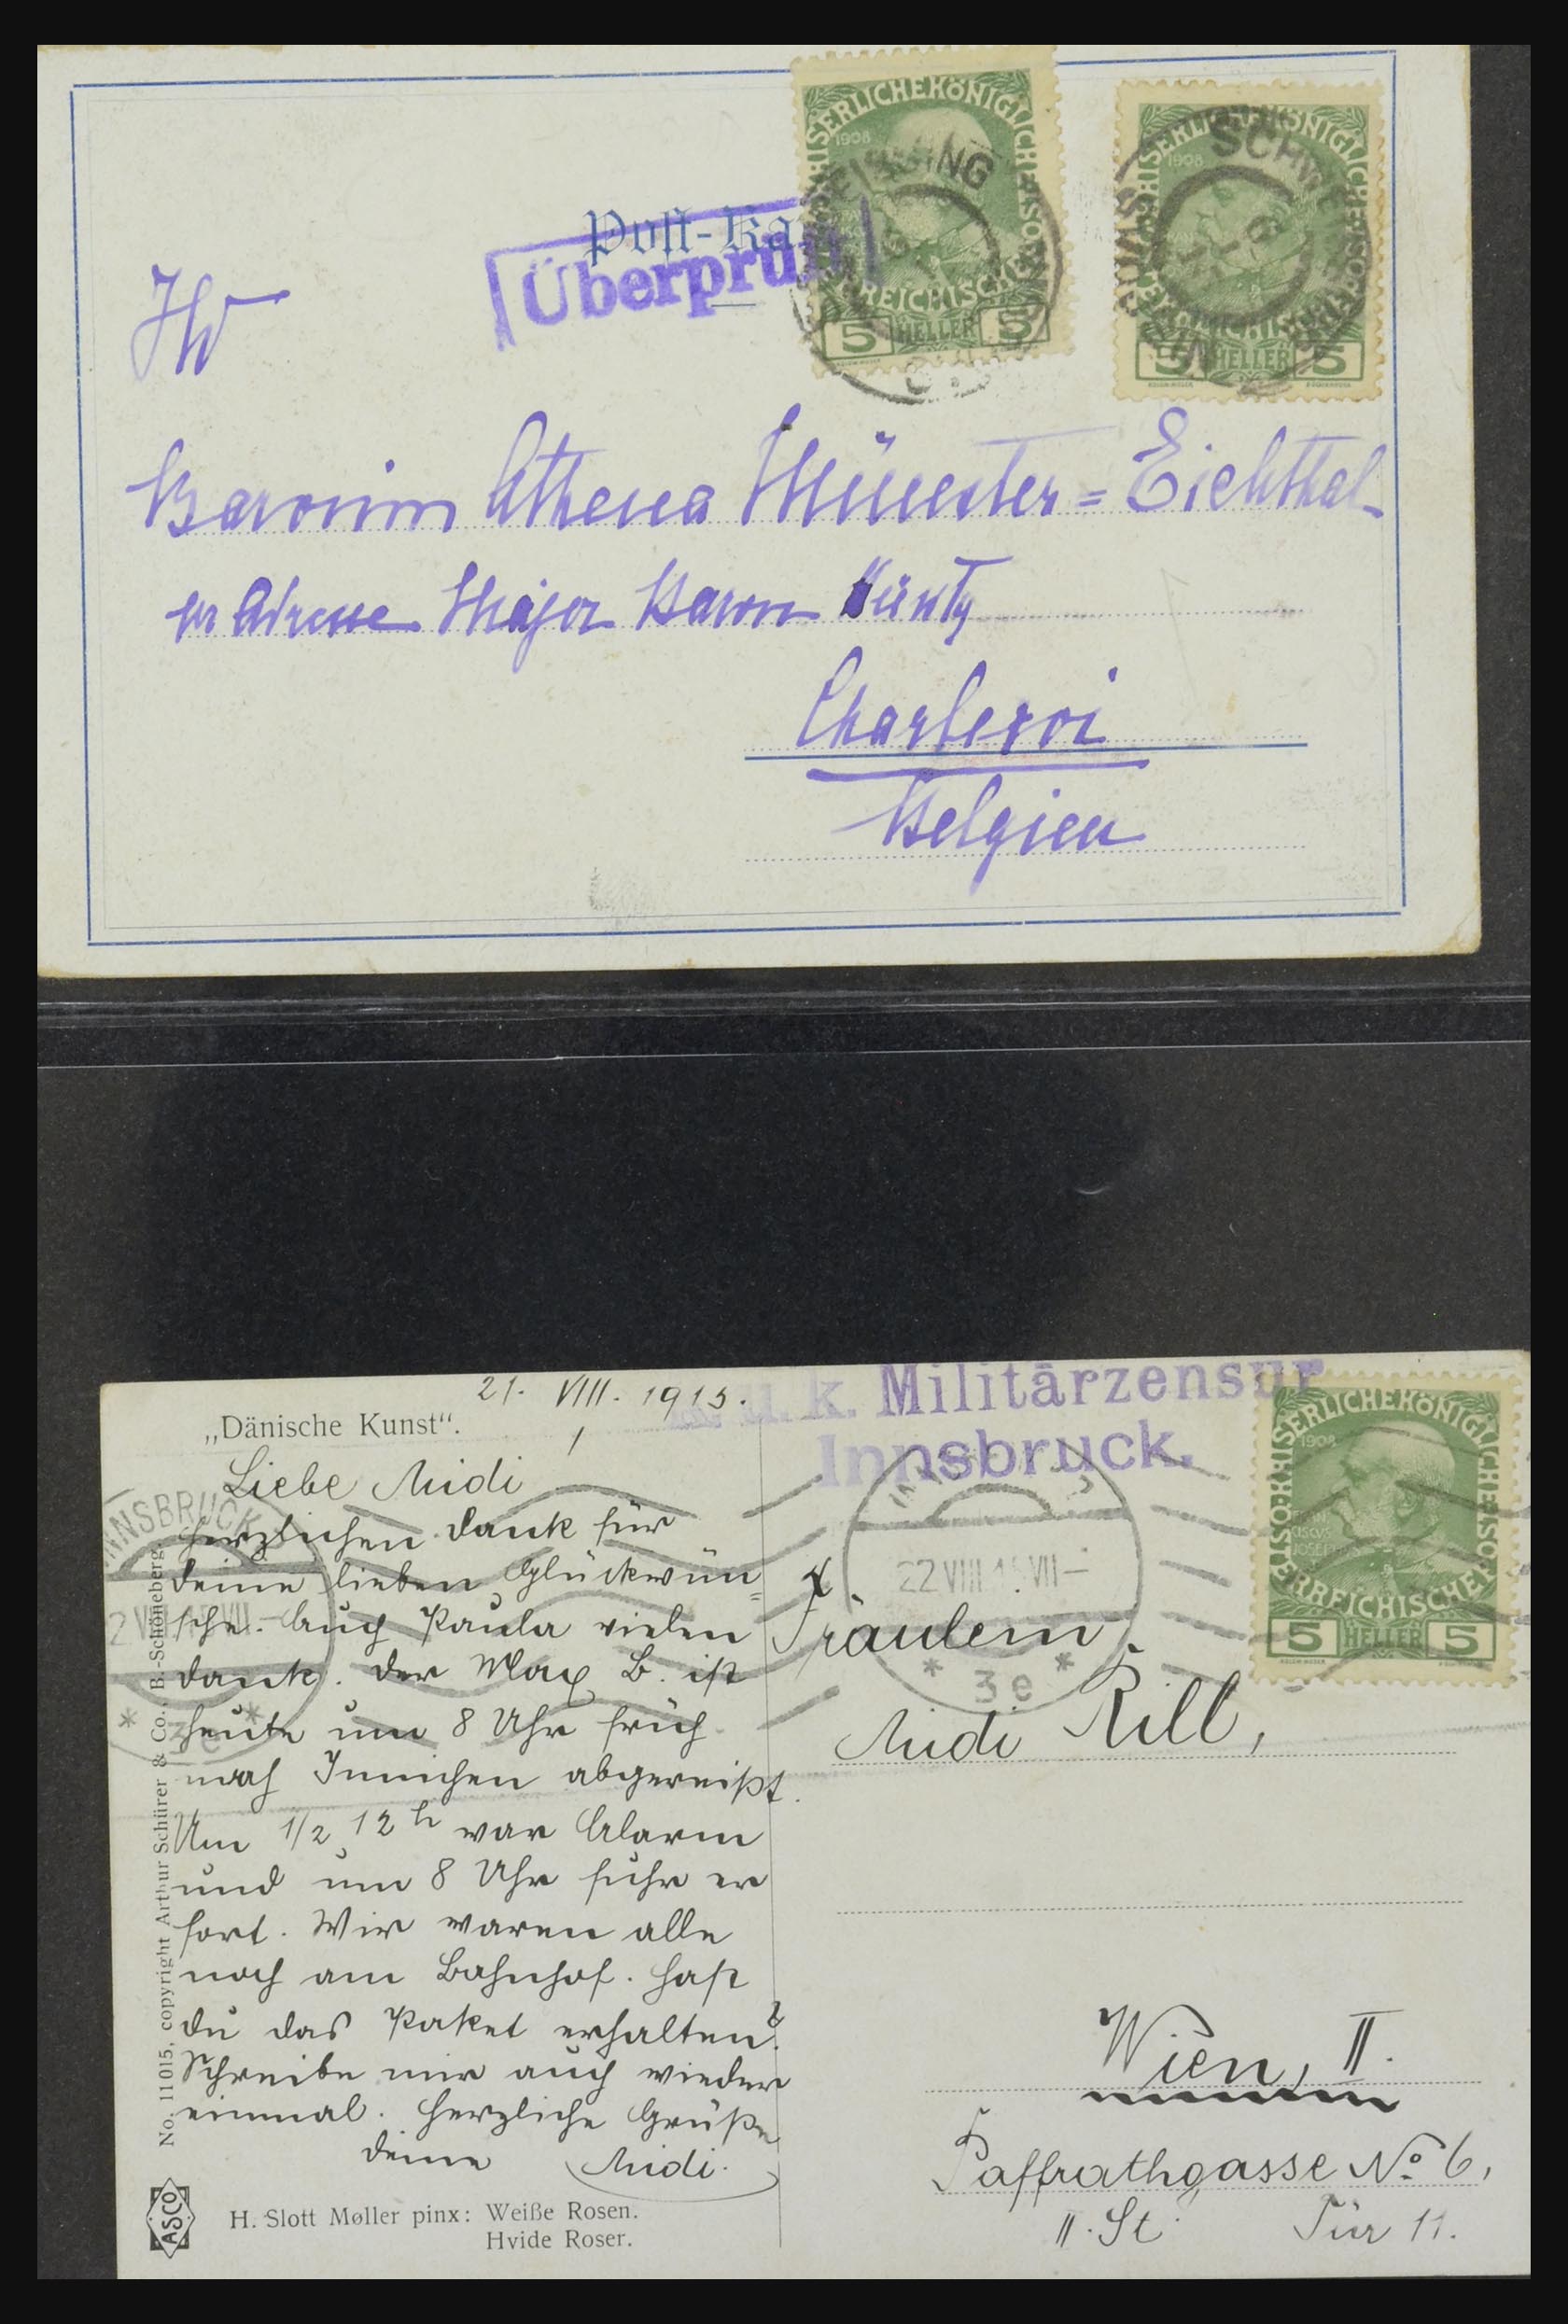 Post-Ka
Überprüft
KAISERLICHE KÖNIGLICHE
1908
5 HELLER 5
KAISERLICHE KÖNIGLICHE
1908
5 HELLER 5
Baronin Athena Münster=Eichthal
Adresse Major Baron
Charleroi
Belgien
21. VIII. 1915.
„Dänische Kunst".
k. u. k. Militärzensur
Innsbruck.
KAISERLICHE KÖNIGLICHE ÖSTERREICHISCHE
1908
5 HELLER 5
INNSBRUCK
22 VIII 15 VII
* 3e *
Liebe Midi
Herzlichen Dank für
deine lieben Glückwün=
sche. Auch Paula vielen
Dank. Der Max B. ist
heute um 8 Uhr früh
nach Innichen abgereißt.
Um 1/2 12 h war Alarm
und um 8 Uhr fuhr er
fort. Wir waren alle
noch am Bahnhof. Hast
du das Paket erhalten?
Schreibe mir auch wieder
einmal. Herzliche Grüße
deine Midi.
Fräulein
Midi Rill,
Wien, II.
Paffrathgasse No 6,
II. St. Tür 11.
No. 11015, copyright Arthur Schürer & Co., B.-Schöneberg.
ASCO
H. Slott Møller pinx: Weiße Rosen.
Hvide Roser.